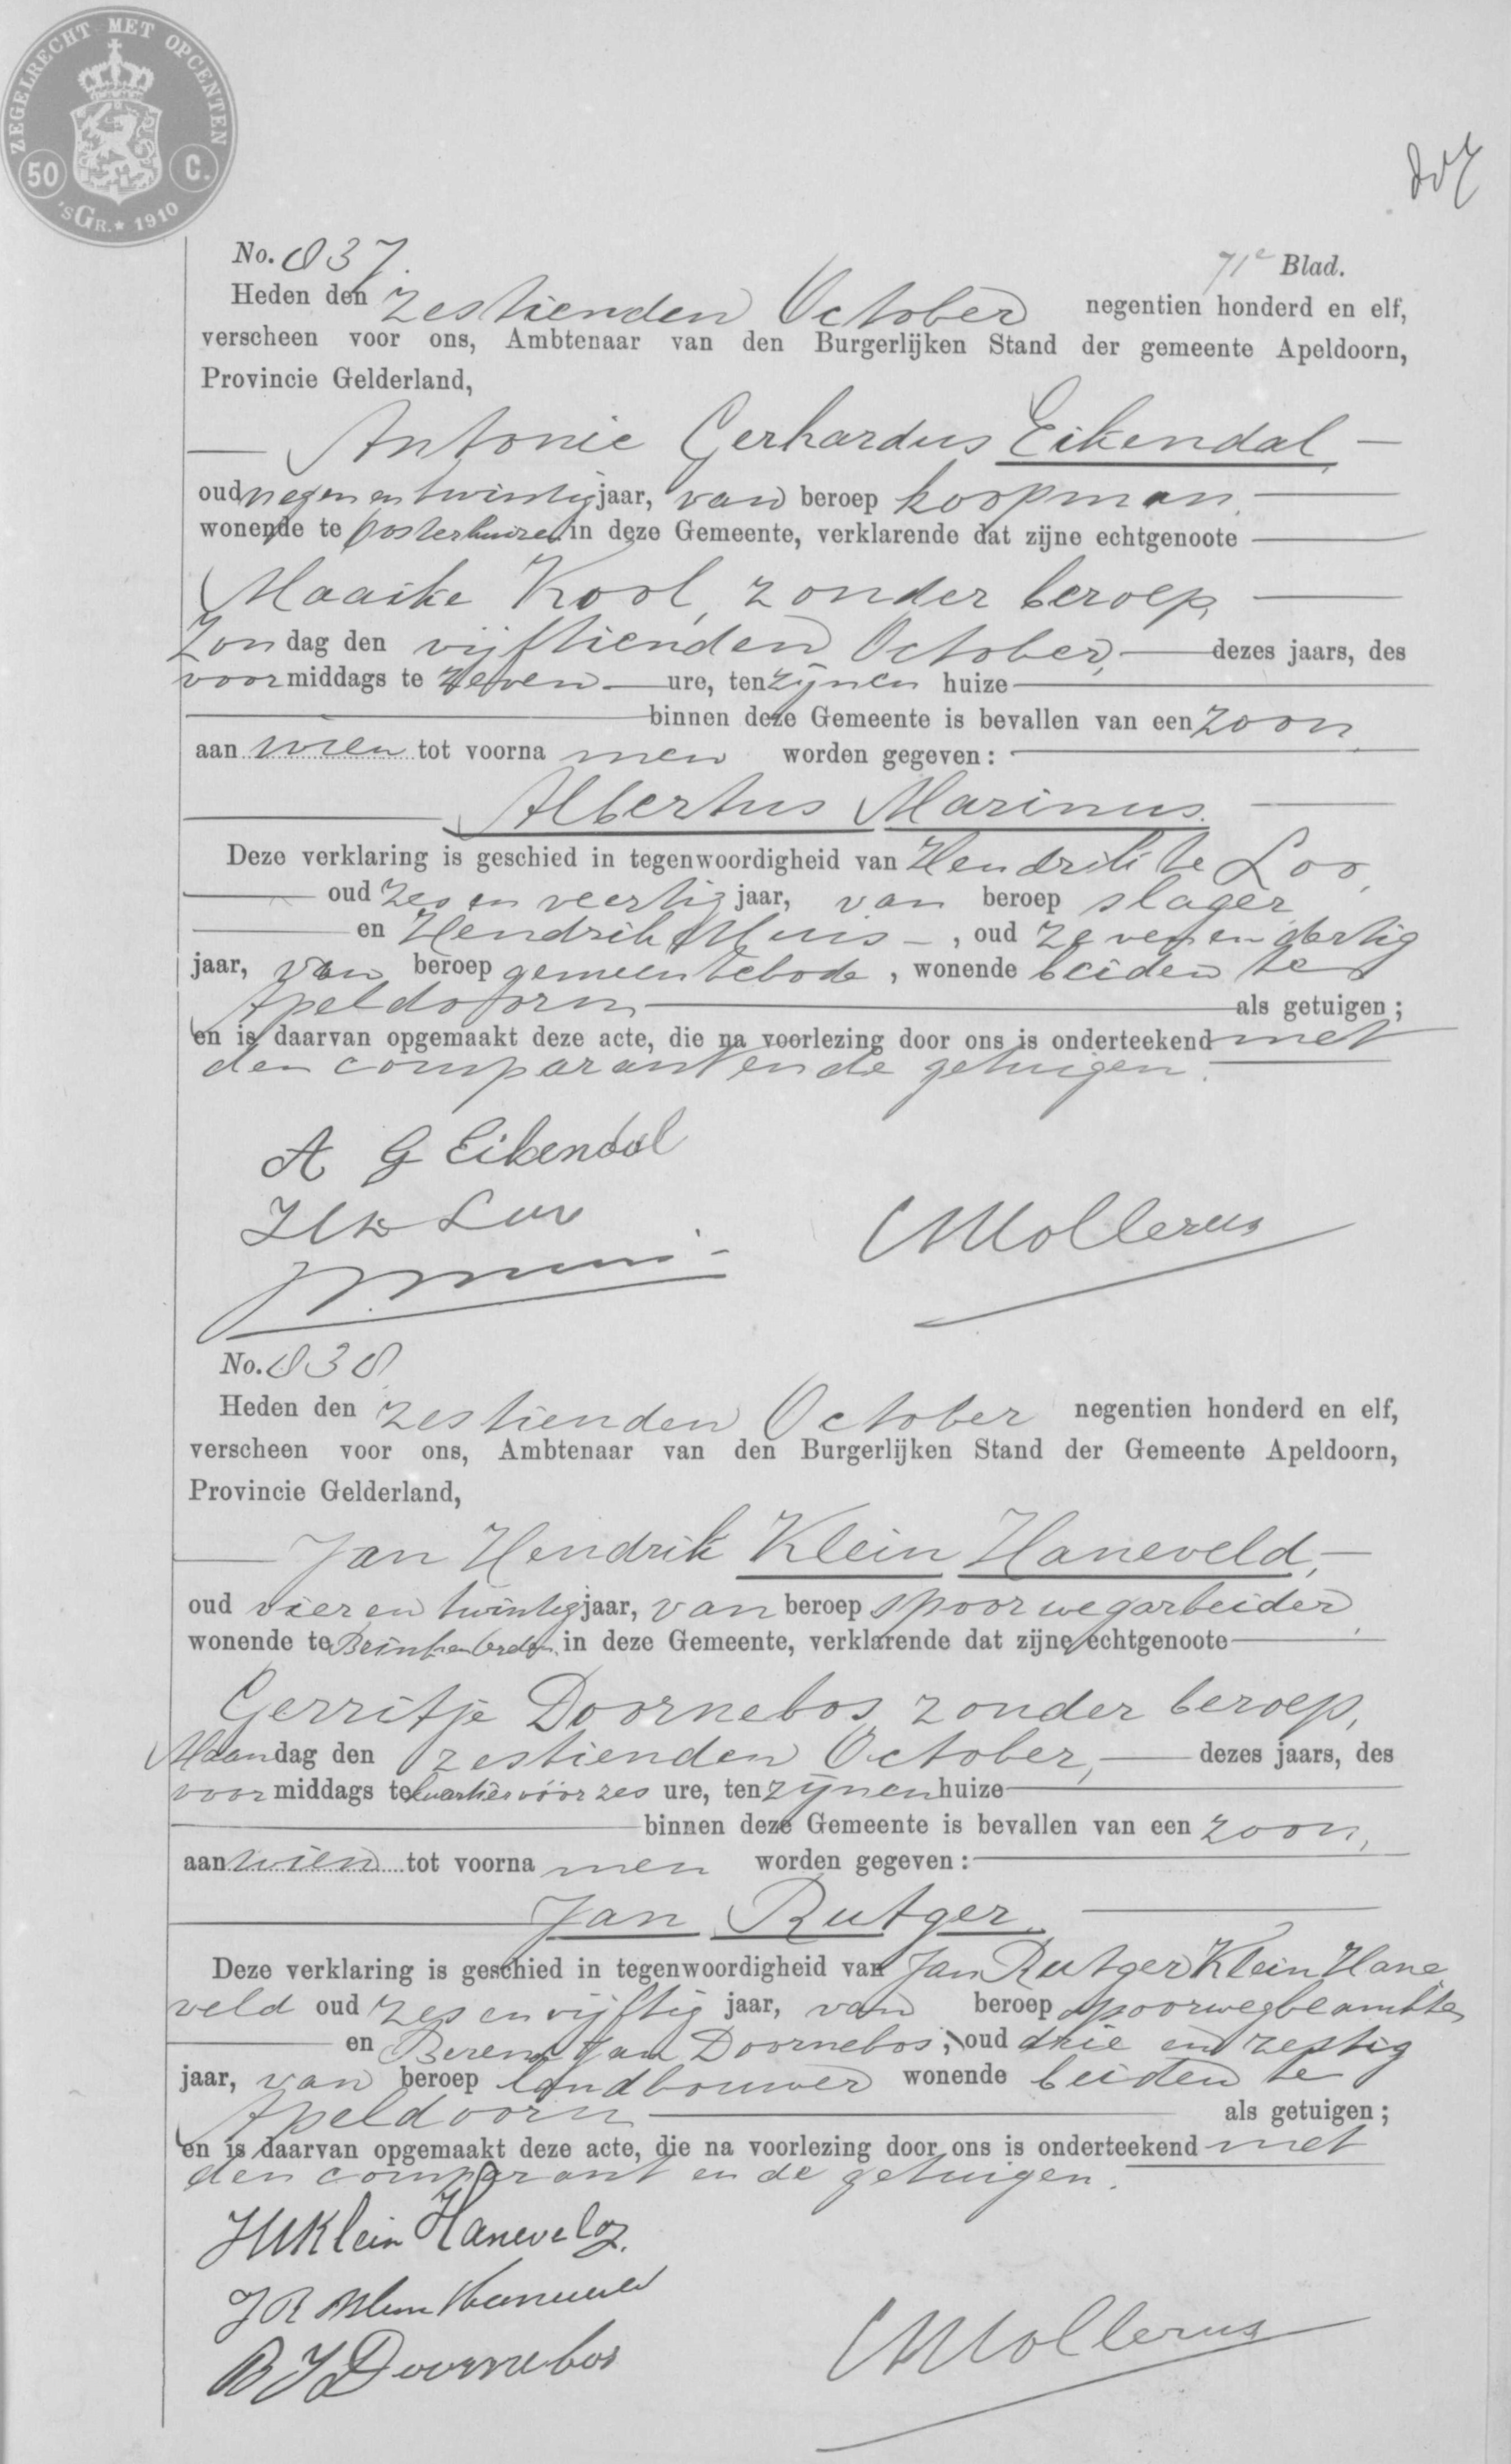 ZEGELRECHT MET OPCENTEN
50 C.
'sGR.★ 1910
No. 837.
71e Blad.
Heden den zestienden October negentien honderd en elf,
verscheen voor ons, Ambtenaar van den Burgerlijken Stand der gemeente Apeldoorn,
Provincie Gelderland,
Antonie Gerhardus Eikendal,
oud negen en twintig jaar, van beroep koopman,
wonende te Oosterhuizen in deze Gemeente, verklarende dat zijne echtgenoote
Maaike Kool, zonder beroep,
Zondag den vijftienden October, dezes jaars, des
voormiddags te zeven ure, ten zijnen huize
binnen deze Gemeente is bevallen van een zoon,
aan wien tot voornamen worden gegeven:
Albertus Marinus.
Deze verklaring is geschied in tegenwoordigheid van Hendrik te Loo,
oud zes en veertig jaar, van beroep slager
en Hendrik Muis, oud zeven en dertig
jaar, van beroep gemeentebode, wonende beiden te
Apeldoorn als getuigen;
en is daarvan opgemaakt deze acte, die na voorlezing door ons is onderteekend met
den comparant en de getuigen.
A G Eikendal
H te Loo
Mollerus
No. 838
Heden den zestienden October negentien honderd en elf,
verscheen voor ons, Ambtenaar van den Burgerlijken Stand der Gemeente Apeldoorn,
Provincie Gelderland,
Jan Hendrik Klein Haneveld,
oud vier en twintig jaar, van beroep spoorwegarbeider,
wonende te in deze Gemeente, verklarende dat zijne echtgenoote
Gerritje Doornebos, zonder beroep,
Maandag den zestienden October, dezes jaars, des
voormiddags te kwartier vóór zes ure, ten zijnen huize
binnen deze Gemeente is bevallen van een zoon,
aan wien tot voornamen worden gegeven:
Jan Rutger.
Deze verklaring is geschied in tegenwoordigheid van Jan Rutger Klein Hane
veld oud zes en vijftig jaar, van beroep spoorwegbeambte,
en Berend Jan Doornebos, oud drie en zestig
jaar, van beroep landbouwer wonende beiden te
Apeldoorn als getuigen;
en is daarvan opgemaakt deze acte, die na voorlezing door ons is onderteekend met
den comparant en de getuigen.
JHKlein Haneveld.
J R Klein Haneveld
B J Doornebos
Mollerus